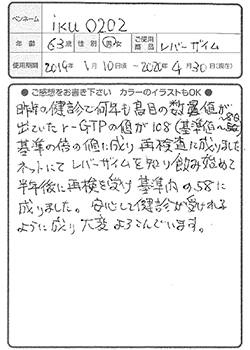 ペンネーム iku 0202
年齢 63才 性別 男・女 ご使用商品 レバーザイム
使用期間 2019年 1月10日頃 ～ 2020年 4月30日(現在)
● ご感想をお書き下さい カラーのイラストもOK ●
昨年の健診で何年も高目の数値が
出ていたγ-GTPの値が108(基準値～
基準の倍の値に成り再検査に成りました
ネットにてレバーザイムを知り飲み始めて
半年後に再検を受け基準内の58に
成りました。安心して健診が受けれる
ように成り大変よろこんでいます。